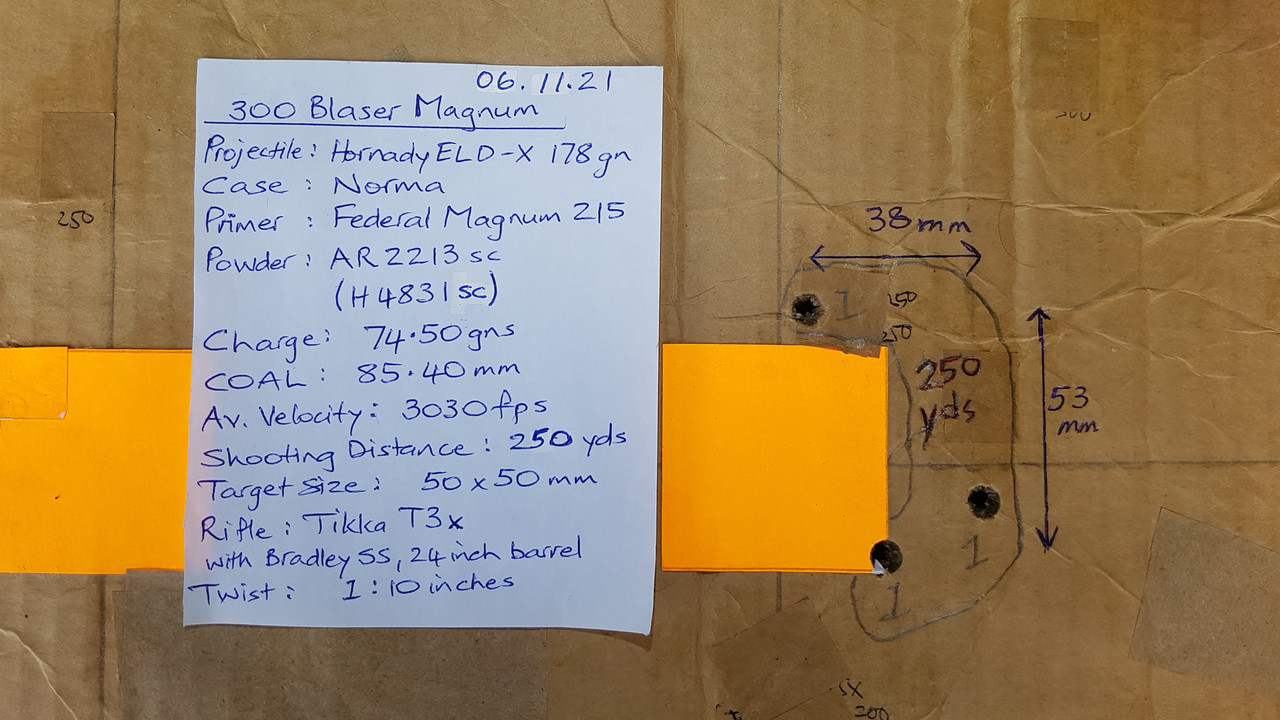 06.11.21
300 Blaser Magnum
Projectile: Hornady ELD-X 178gn
Case : Norma
Primer : Federal Magnum 215
Powder: AR2213 sc
(H4831 sc)
Charge: 74.50gns
COAL : 85.40mm
Av. Velocity: 3030fps
Shooting Distance : 250 yds
Target Size: 50 x 50mm
Rifle : Tikka T3x
with Bradley SS, 24 inch barrel
Twist: 1:10 inches
250
300
38mm
1
250
250
250
yds
53
mm
1
1
5x
200